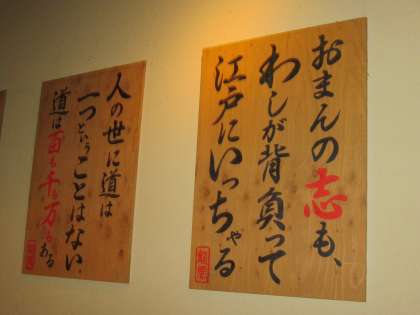 おまんの志も、
わしが背負って
江戸にいっちゃる
人の世に道は
一つということはない
道は百も千も万もある